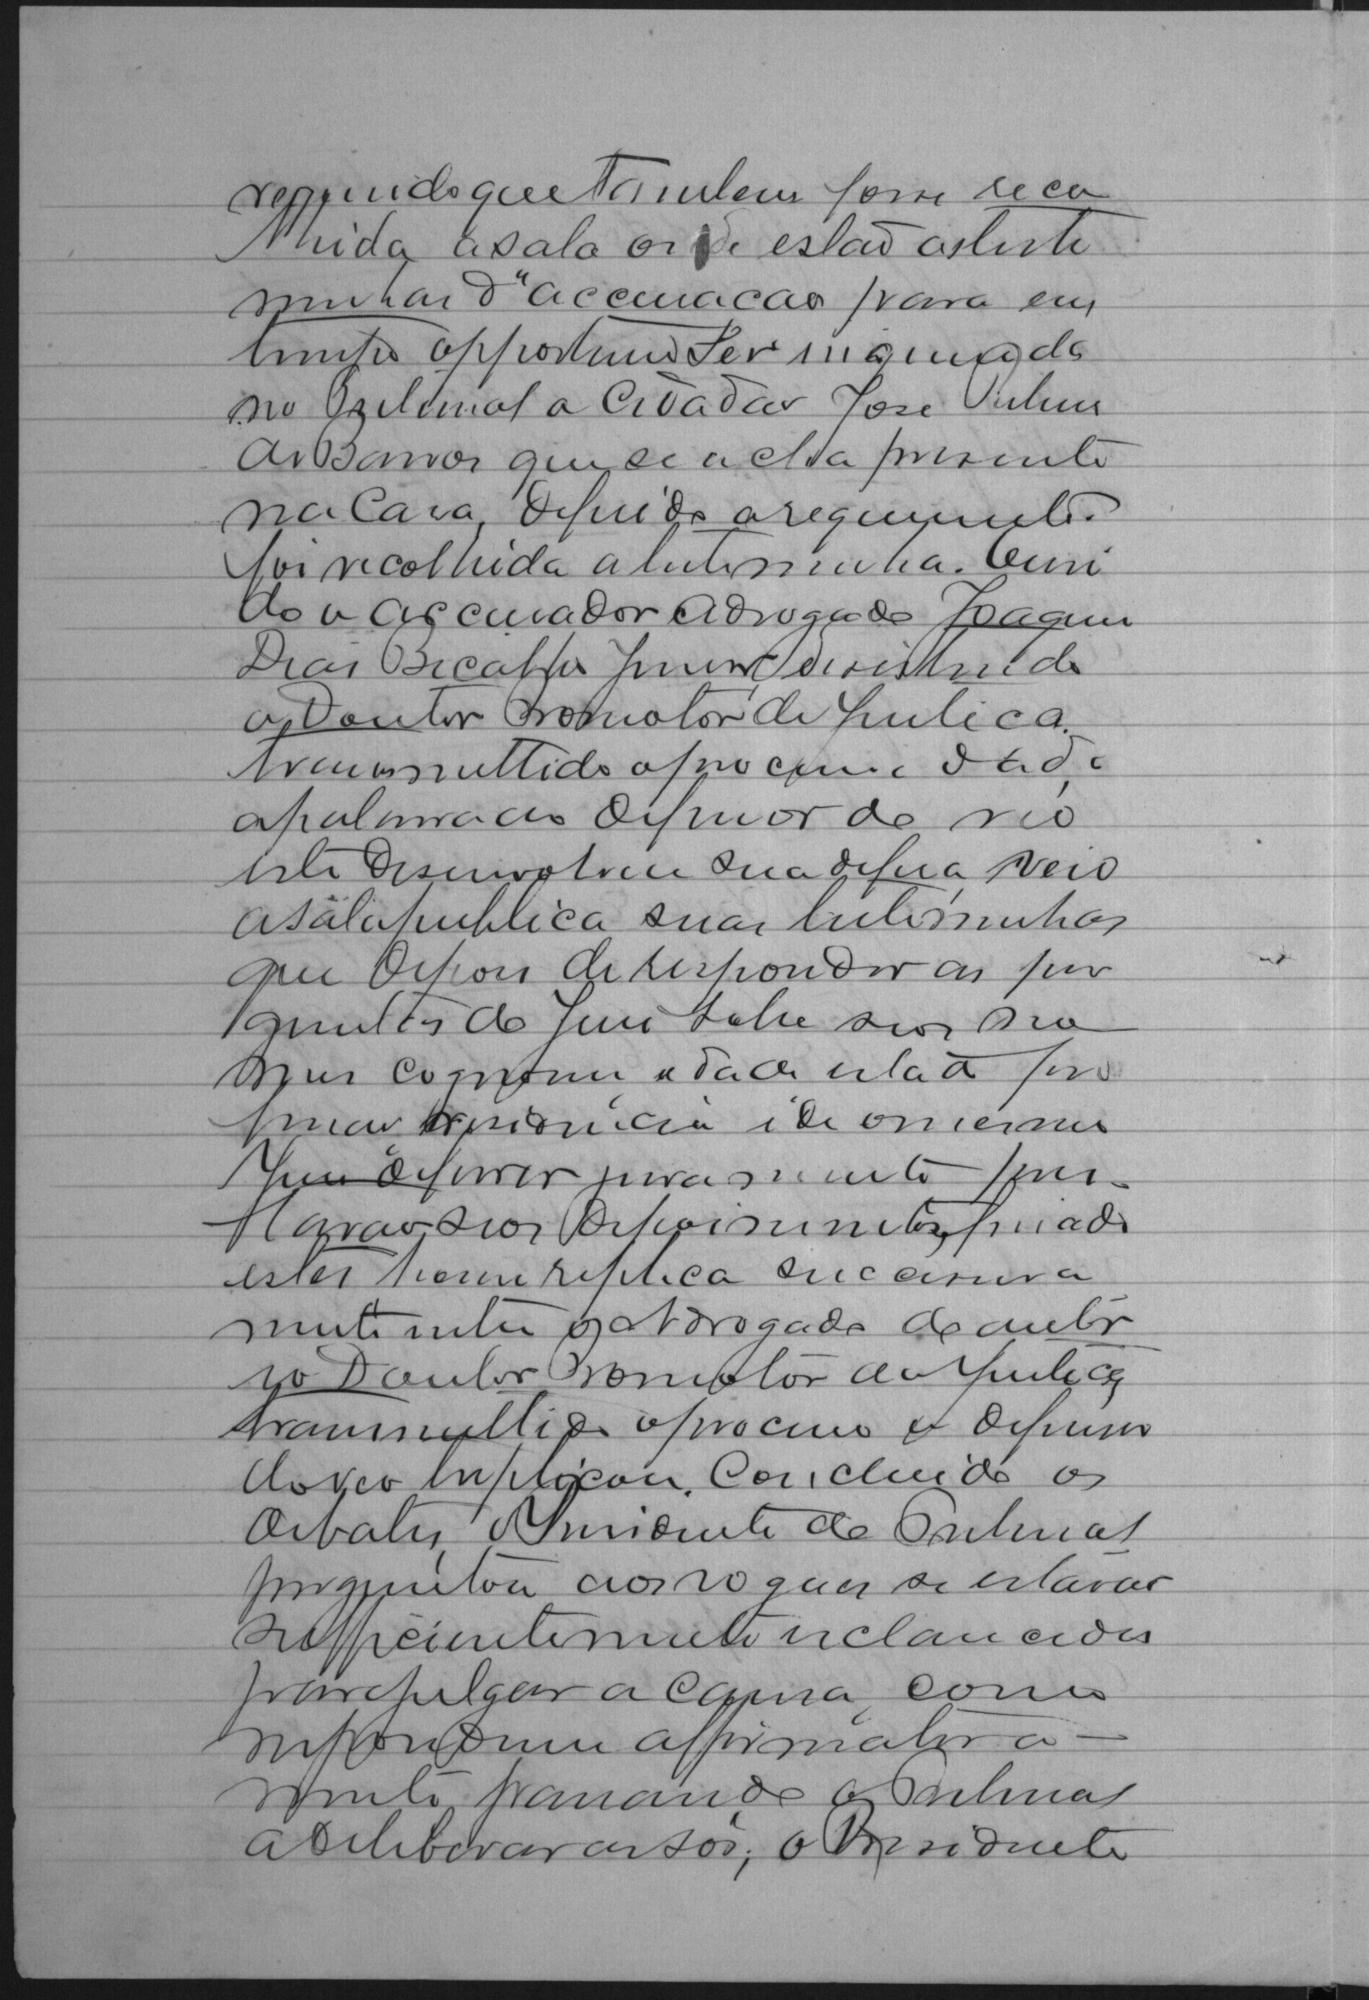 requerido que tambem fosse reco
lhida a sala onde estaõ as teste
munhas d'accusacao para em
tempo opportuno ser inquerida
no Tribunal a Cidadao José
de Barros que se acha presente
na Casa, deferido o requerimento
foi recolhida a testemunha. Ouvi
do o accusador advogado Joaquim
Dias Bicalho Junior desistindo
o Doutor Promotor de Justica.
transmettido o processo e dada
a palavra ao defensor do réo
este desenvolveu sua defesa, veio
a sala publica suas testemunhas
que depois de responder as per
guntas do Juiz sobre seos no
mes cognomes idade estado pro
residencia e de
deferer juramento pres
tarao seos depoimentos, findo
estes houve replica successiva
mente entre o Advogado do autor
e o Doutor Promotor da Justiça,
transmettido o processo o defensor
do reo treplicou. Concluido os
debates, o Presidente do Tribunal
perguntou aos vogaes se estavao
sufficientemente esclarecidos
para julgar a causa, como
responderam affirmativa-
mente passando o Tribunal
a deliberar a sós; o Presidente